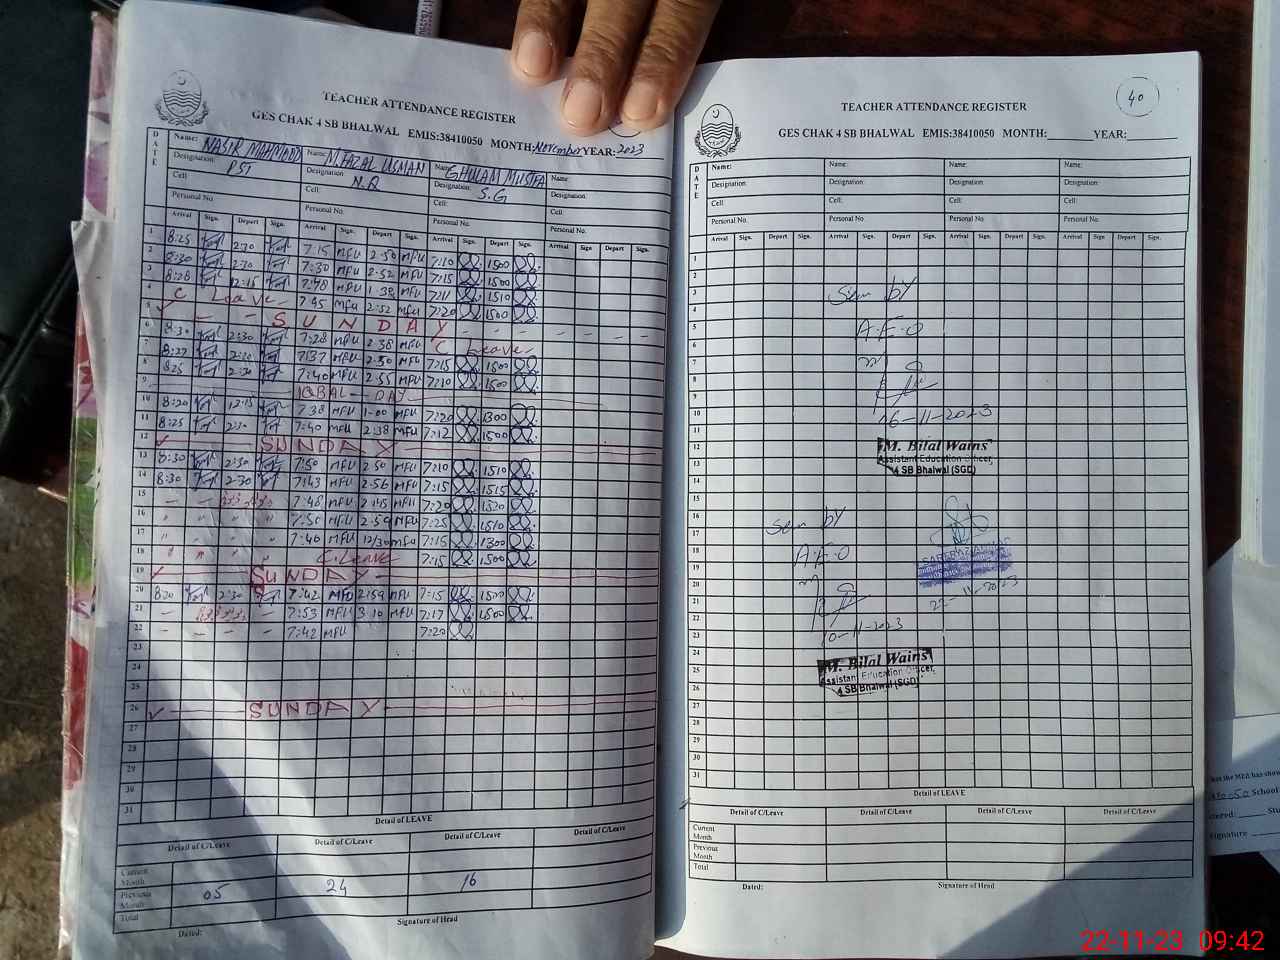 TEACHER ATTENDANCE REGISTER
GES CHAK 4 SB BHALWAL EMIS:38410050 MONTH: November YEAR: 2023
DATE
Name: NASIR MAHMOOD Name: M. FAZAL USMAN Name: GHULAM MUSTFA Name:
Designation: PST Designation: N.Q Designation: S.G Designation:
Cell: Cell: Cell: Cell:
Personal No. Personal No. Personal No. Personal No.
Arrival Sign. Depart Sign. Arrival Sign. Depart Sign. Arrival Sign. Depart Sign. Arrival Sign. Depart Sign.
1 8:25 2:30 7:15 MFU 2:50 MFU 7:10 1500
2 8:30 2:30 7:30 MFU 2:52 MFU 7:15 1500
3 8:28 12:15 7:48 MFU 1:30 MFU 7:11 1510
4 C Leave 7:45 MFU 2:52 MFU 7:20 1500
5 SUNDAY
6 8:30 2:30 7:28 MFU 2:38 MFU C Leave
7 8:27 2:30 7:37 MFU 2:50 MFU 7:15 1500
8 8:25 2:30 7:40 MFU 2:55 MFU 7:10 1500
9 IQBAL DAY
10 8:20 12:15 7:38 MFU 1-00 MFU 7:20 1300
11 8:25 2:30 7:40 MFU 2:38 MFU 7:12 1500
12 SUNDAY
13 8:30 2:30 7:50 MFU 2:50 MFU 7:10 1510
14 8:30 2:30 7:43 MFU 2:56 MFU 7:15 1515
15 7:46 MFU 2:45 MFU 7:20 1520
16 7:50 MFU 2:50 MFU 7:25 1510
17 7:40 MFU 12/30 MFU 7:15 1300
18 C.Leave 7:15 1500
19 SUNDAY
20 8:20 2:30 7:42 MFU 2:59 MFU 7:15 1500
21 7:53 MFU 3:10 MFU 7:17 1500
22 7:42 MFU 7:20
23
24
25
26 SUNDAY
27
28
29
30
31
Detail of LEAVE
Detail of C/Leave Detail of C/Leave Detail of C/Leave Detail of C/Leave
Current Month
Previous Month 05 24 16
Total
Dated: Signature of Head
40
TEACHER ATTENDANCE REGISTER
GES CHAK 4 SB BHALWAL EMIS:38410050 MONTH:________ YEAR:________
DATE
Name: Name: Name: Name:
Designation: Designation: Designation: Designation:
Cell: Cell: Cell: Cell:
Personal No. Personal No. Personal No. Personal No.
Arrival Sign. Depart Sign. Arrival Sign. Depart Sign. Arrival Sign. Depart Sign. Arrival Sign. Depart Sign.
1
2
3
4
5
6
7
8
9
10
11
12
13
14
15
16
17
18
19
20
21
22
23
24
25
26
27
28
29
30
31
Seen by
A.E.O
16-11-2023
M. Bilal Wains
Assistant Education Officer
4 SB Bhalwal (SGD)
Seen by
A.E.O
22-11-2023
M. Bilal Wains
Assistant Education Officer
4 SB Bhalwal (SGD)
Detail of LEAVE
Detail of C/Leave Detail of C/Leave Detail of C/Leave Detail of C/Leave
Current Month
Previous Month
Total
Dated: Signature of Head
School
Signature
22-11-23 09:42